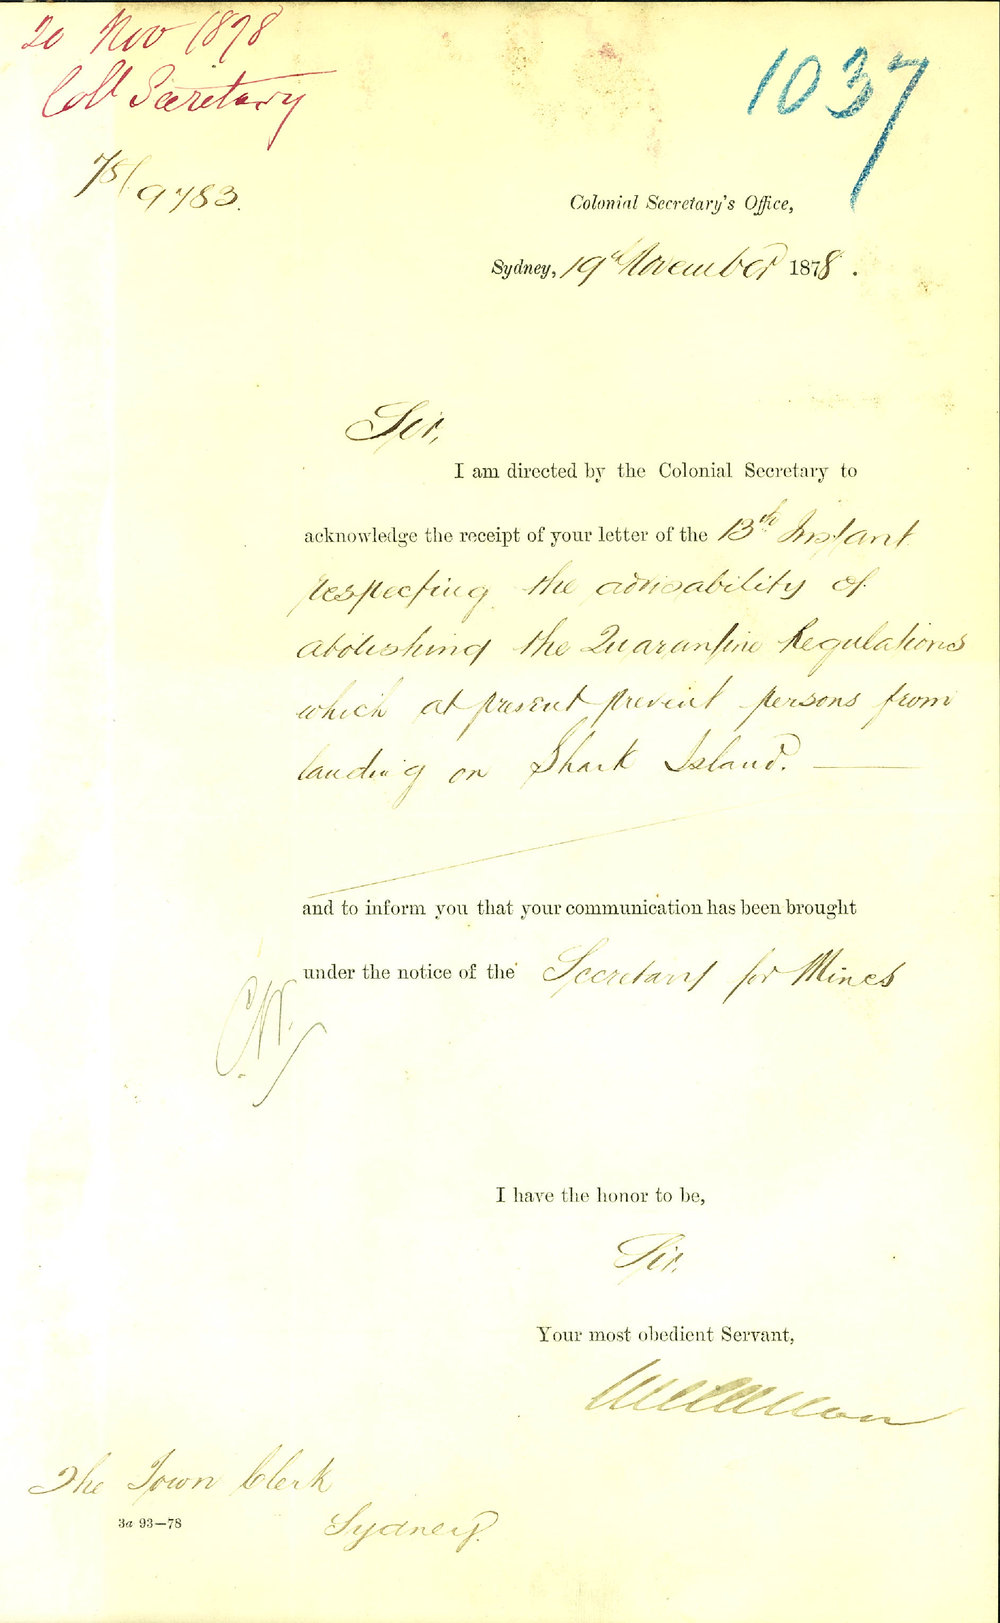 20 Nov 1878
Coll Secretary
1037
78/9783.
Colonial Secretary's Office,
Sydney, 19th November 1878.
Sir,
I am directed by the Colonial Secretary to
acknowledge the receipt of your letter of the 13th Instant
respecting the advisability of
abolishing the Quarantine Regulations
which at present prevent persons from
landing on Shark Island.
and to inform you that your communication has been brought
under the notice of the Secretary for Mines
I have the honor to be,
Sir,
Your most obedient Servant,
The Town Clerk
3a 93—78
Sydney.